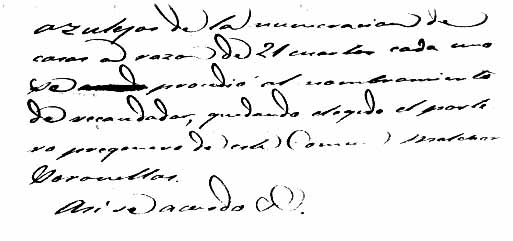 azulejos de la numeracion de
casas a razon de 21 cuartos cada uno
se procedió al nombramiento
de recaudador, quedando elegido el porte
ro pregonero de este Comun
Así se acordo